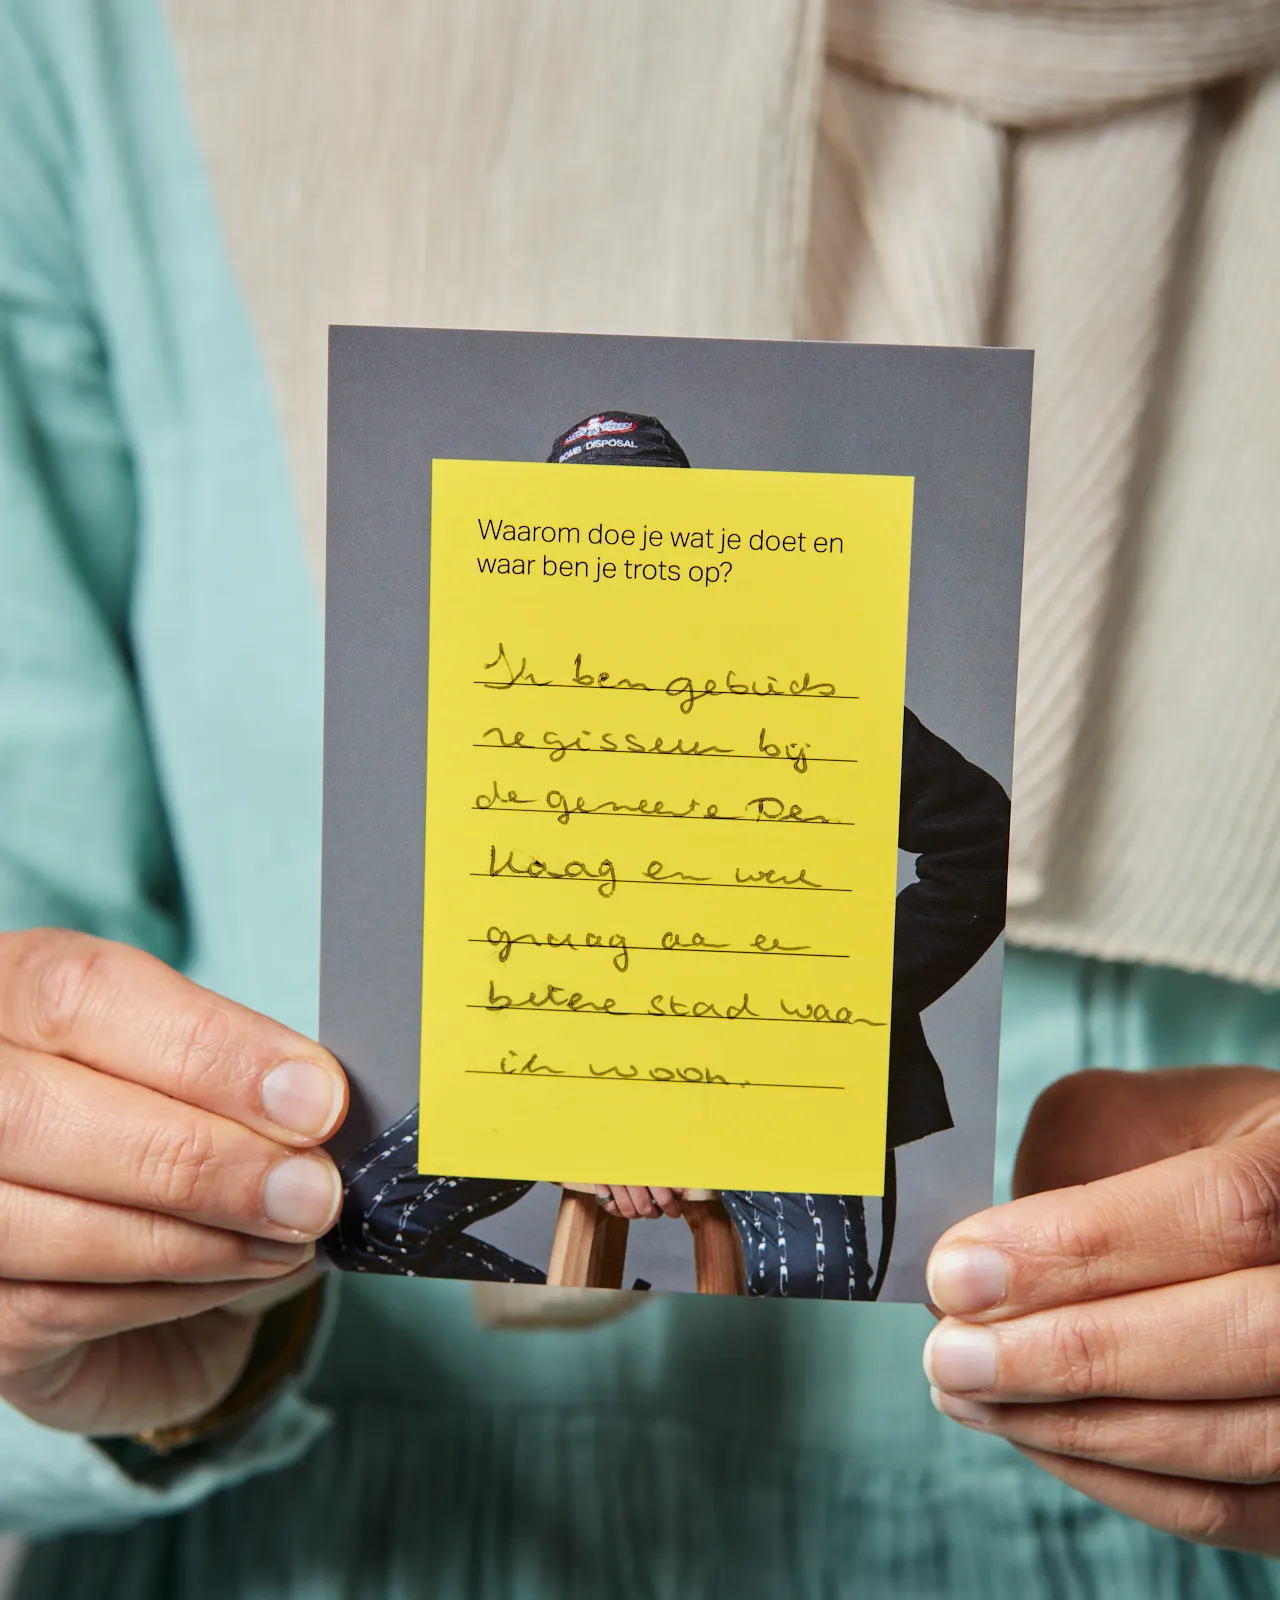 BOMB DISPOSAL
Waarom doe je wat je doet en
waar ben je trots op?
Ik ben gebieds
regisseur bij
de gemeente Den
Haag en werk
graag aan een
betere stad waar
ik woon.